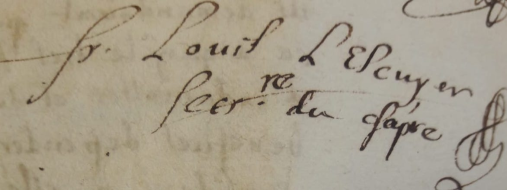 fr. Louis L'Escuyer
Secr.re du Chapre